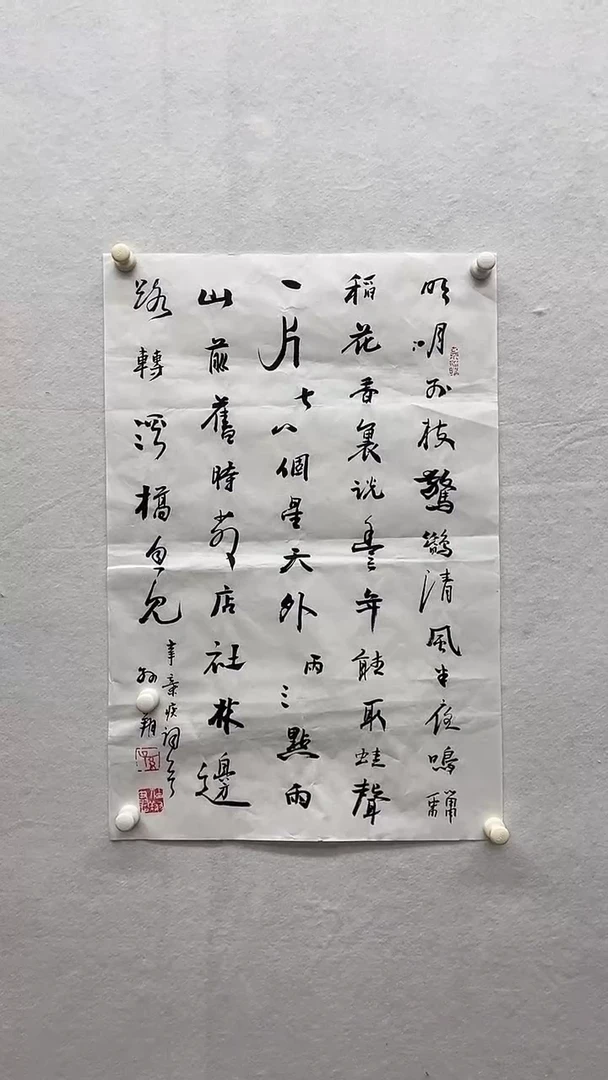 明月别枝驚鵲清風半夜鳴蟬
稻花香裏説豐年聽取蛙聲
一片七八個星天外兩三點雨
山前舊時茅店社林邊
路轉溪橋忽見
辛棄疾詞
翔